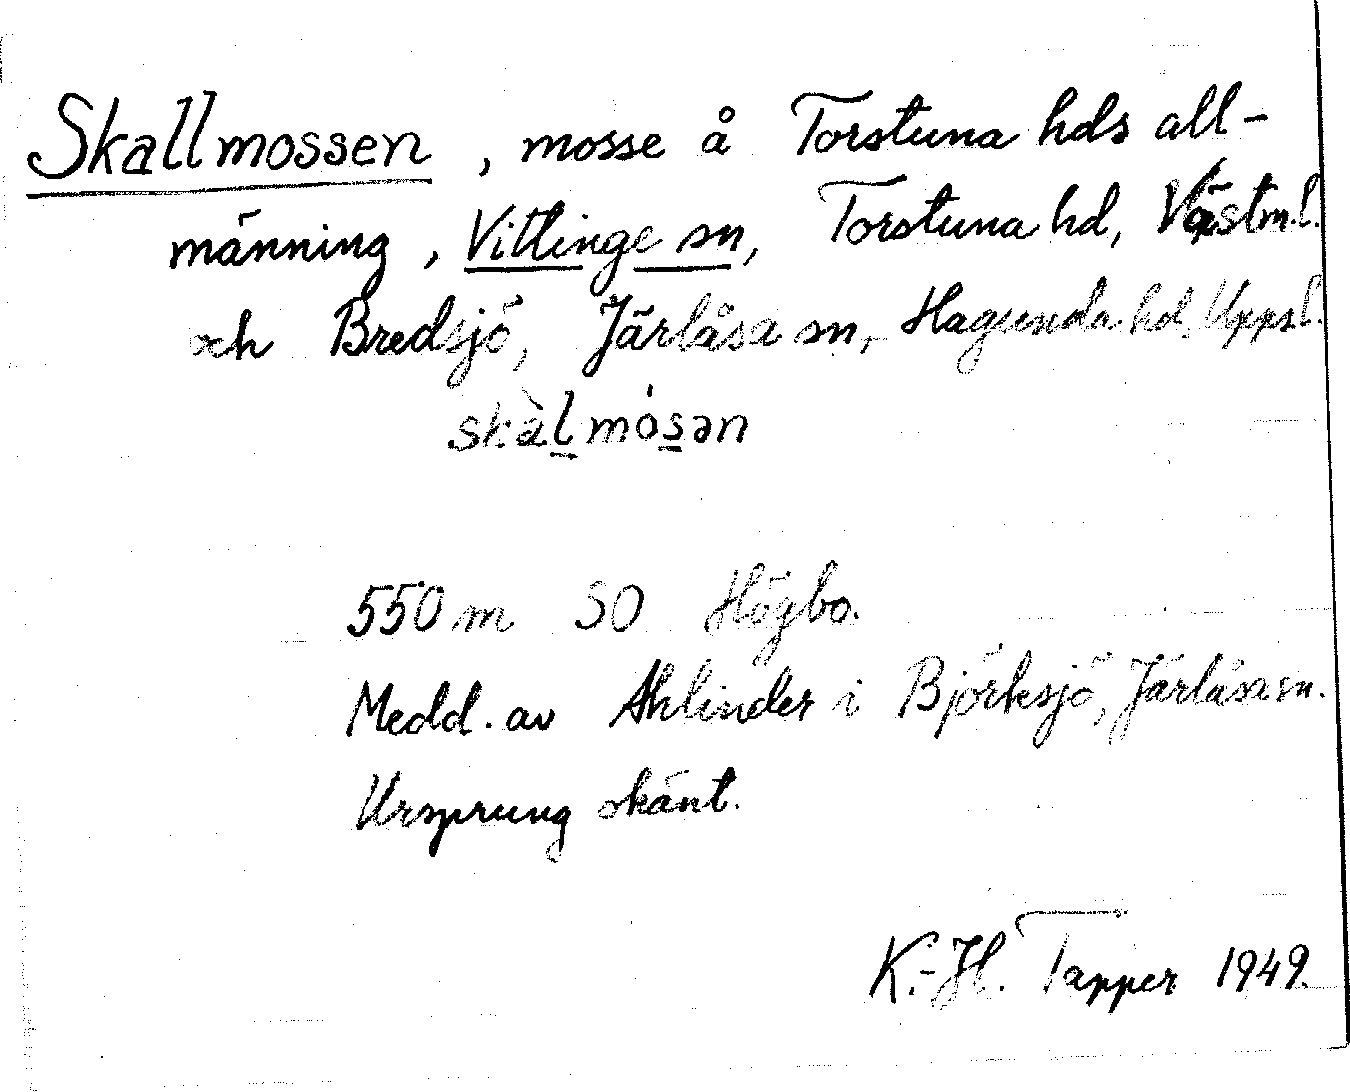 Skallmossen, mosse å Torstuna hds all-
männing, Vittinge sn, Torstuna hd, Västm.l.
och Bredsjö, Järlåsa sn, Hagunda hd Upps.l.
skàl̠mós̠ən
550 m SO Högbo.
Medd. av Ahlinder i Björksjö, Järlåsa sn.
Ursprung okänt.
K.-H. Tapper 1949.